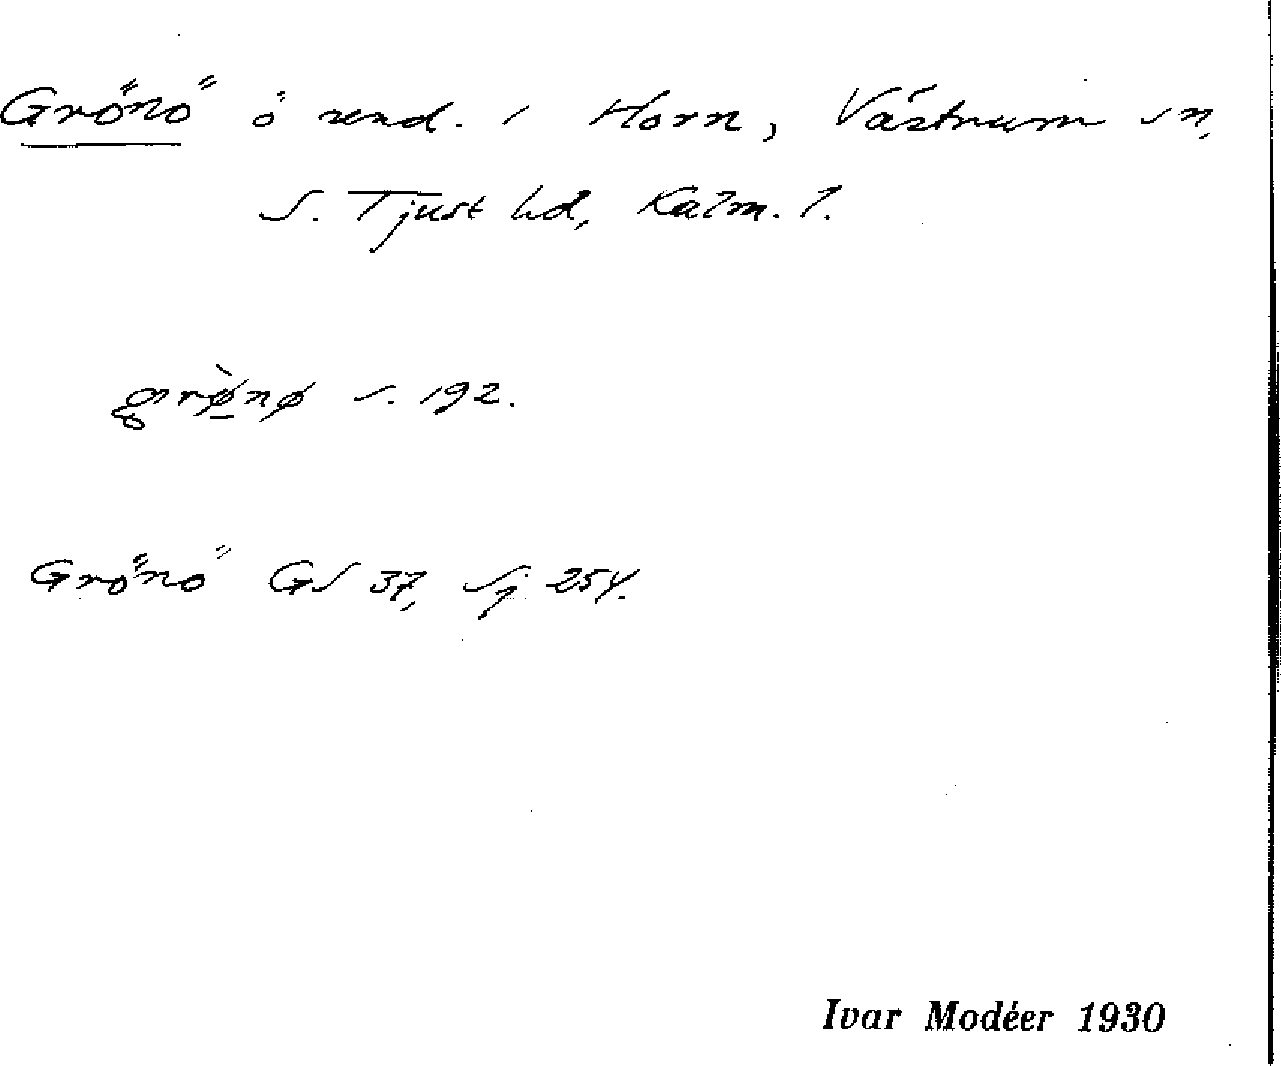 Grönö ö und. i Horn, Västrum sn,
S. Tjust hd, Kalm. l.
grø̀nø s. 192.
Grönö GS 37, Sj 254.
Ivar Modéer 1930